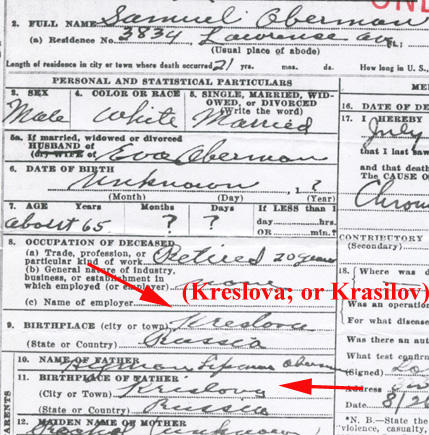 2. FULL NAME Samuel Oberman
(a) Residence No. 3834 Lawrence av St.;
(Usual place of abode)
Length of residence in city or town where death occurred 21 yrs. mos. ds. How long in U. S.,
PERSONAL AND STATISTICAL PARTICULARS
3. SEX 4. COLOR OR RACE 5. SINGLE, MARRIED, WID-
OWED, or DIVORCED
(Write the word)
Male White Married
5a. If married, widowed or divorced
HUSBAND of
(or) WIFE of Eva Oberman
6. DATE OF BIRTH
Unknown , 1 ?
(Month) (Day) (Year)
7. AGE Years Months Days If LESS than 1
day hrs.
OR min.?
about 65 ? ?
8. OCCUPATION OF DECEASED
(a) Trade, profession, or
particular kind of work Retired 20 years
(b) General nature of industry,
business, or establishment in
which employed (or employer) none
(c) Name of employer
(Kreslova; or Krasilov)
9. BIRTHPLACE (city or town) Kreslova
(State or Country) Russia
10. NAME OF FATHER Hyman Lipman Oberman
11. BIRTHPLACE OF FATHER
(City or Town)
(State or Country) Russia
12. MAIDEN NAME OF MOTHER
unknown
PARENTS
16. DATE OF DE
17. I HEREBY
July
that I last saw
and that death
The CAUSE OF
Chron
CONTRIBUTORY
(Secondary)
18. Where was d
Was an operation
For what disease
Was there an aut
What test confirm
(Signed)
Address
8/26
*N. B.—State the
violence, casualty,